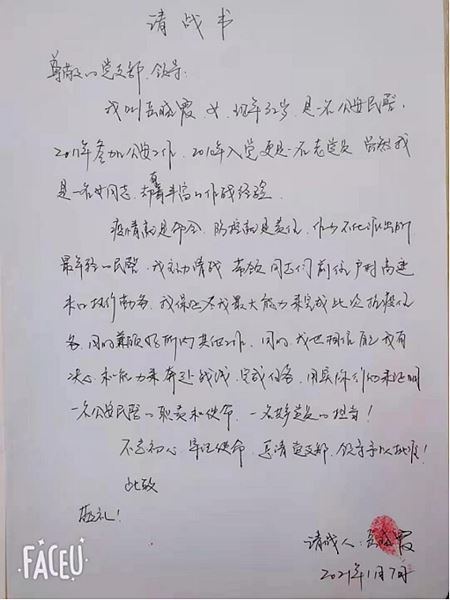 请战书
尊敬的党支部、领导:
我叫 晓霞,女,现年32岁,是一名公安民警,
2011年参加公安工作,2010年入党更是一名老党员 虽然我
是一名女同志,却有着丰富的工作战经验。
疫情就是命令,防控就是责任,作为不化派出所
最年轻的民警,我主动请战 带领同志们前往户村高速
口执行勤务,我保证尽我最大能力来完成此次抗疫任
务,同时兼顾好所内其他工作,同时,我也相信自己我有
决心和能力来奔赴战场,完成任务,用实际行动来证明
一名公安民警的职责和使命,一名好党员的担当!
不忘初心,牢记使命,恳请党支部、领导予以批准!
此致
敬礼!
请战人: 晓霞
2021年1月7日
FACEU